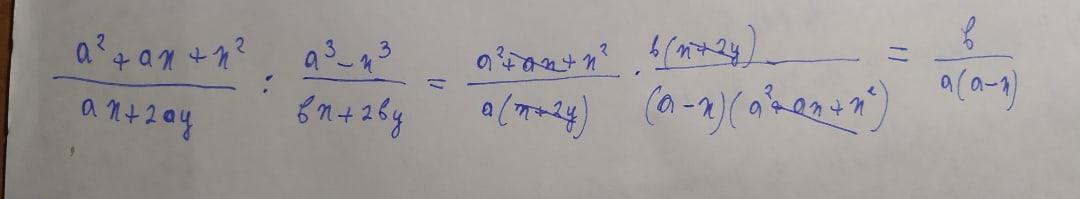 (a² + ax + x²)/(ax + 2ay) : (a³ - x³)/(bx + 2by) = (a² + ax + x²)/(a(x + 2y)) · (b(x + 2y))/((a - x)(a² + ax + x²)) = b/(a(a - x))